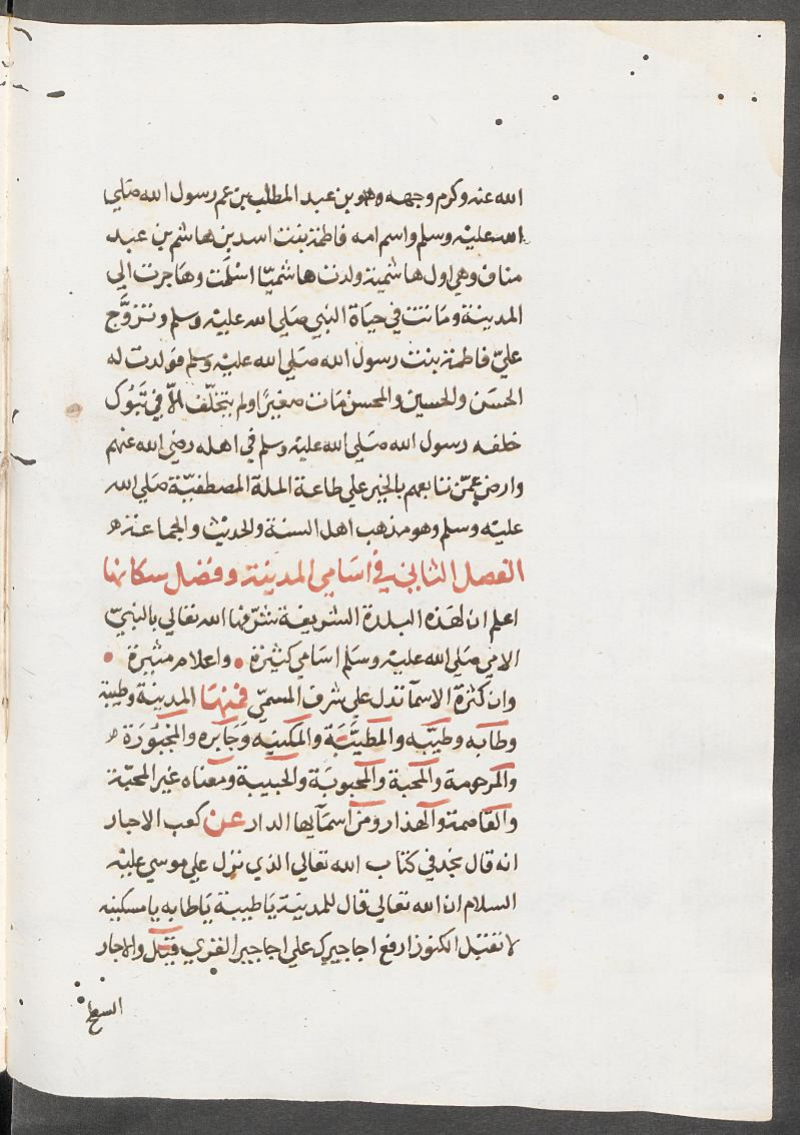 الله عنه وكرم وجهه وهو بن عبد المطلب بن عم رسول الله صَلي
الله عليه وسلم واسم امه فاطمة بنت اسد بن هاشم بن عبد
مناف وهي اول هاشمية ولدت هاشميّا اسْلمَت وهَاجرت الي
المدينة ومَاتت في حيَاة النبي صَلي الله عليه وسلم وتزوَّج
عليّ فاطمة بنت رسول الله صَلي الله عليه وسلم فولدت له
الحسَن والحسين والمحسن مَات صغيرًا ولم يتخلّف الّا في تبَوُك
خلفه رسول الله صَلي الله عليه وسلم في اهله رضي الله عنهم
وارض عمّن تابعهم بالخير علي طاعة الملة المصطفيّة صَلي الله
عليه وسلم وهو مذهب اهل السنة والحديث والجماعة ه
الفصل الثاني في أسَامي المدينة وفضل سكانها
اعلم ان لهذه البلدة الشريفة شرّفها الله تعالي بالنبيّ
الامي صَلي الله عليه وسَلم اسَامي كثيرة • واعلام مثيرة •
وان كثرة الاسمآ تدل علي شرف المسمّي فمنها المدينة وطيبة
وطَابه وطيّبه والمطيَّبَة والمكينيه وَجَابره والمجبُورَة ه
والمرحومة والمحبة والمحبوبَة والحبيبة ومعنَاه غير المحبّة
والقاصمة والهذار ومن اسمَآيها الدار عن كعب الاحبار
انه قال نجد في كتاب الله تعالي الذي نزل علي موسي عليه
السلام ان الله تعالي قال للمدينة يَا طيبة يَا طابه يا مسكينه
لا تقبل الكنوز ارفع اجاجيرك علي اجاجير القري قيل والاجار
السطح